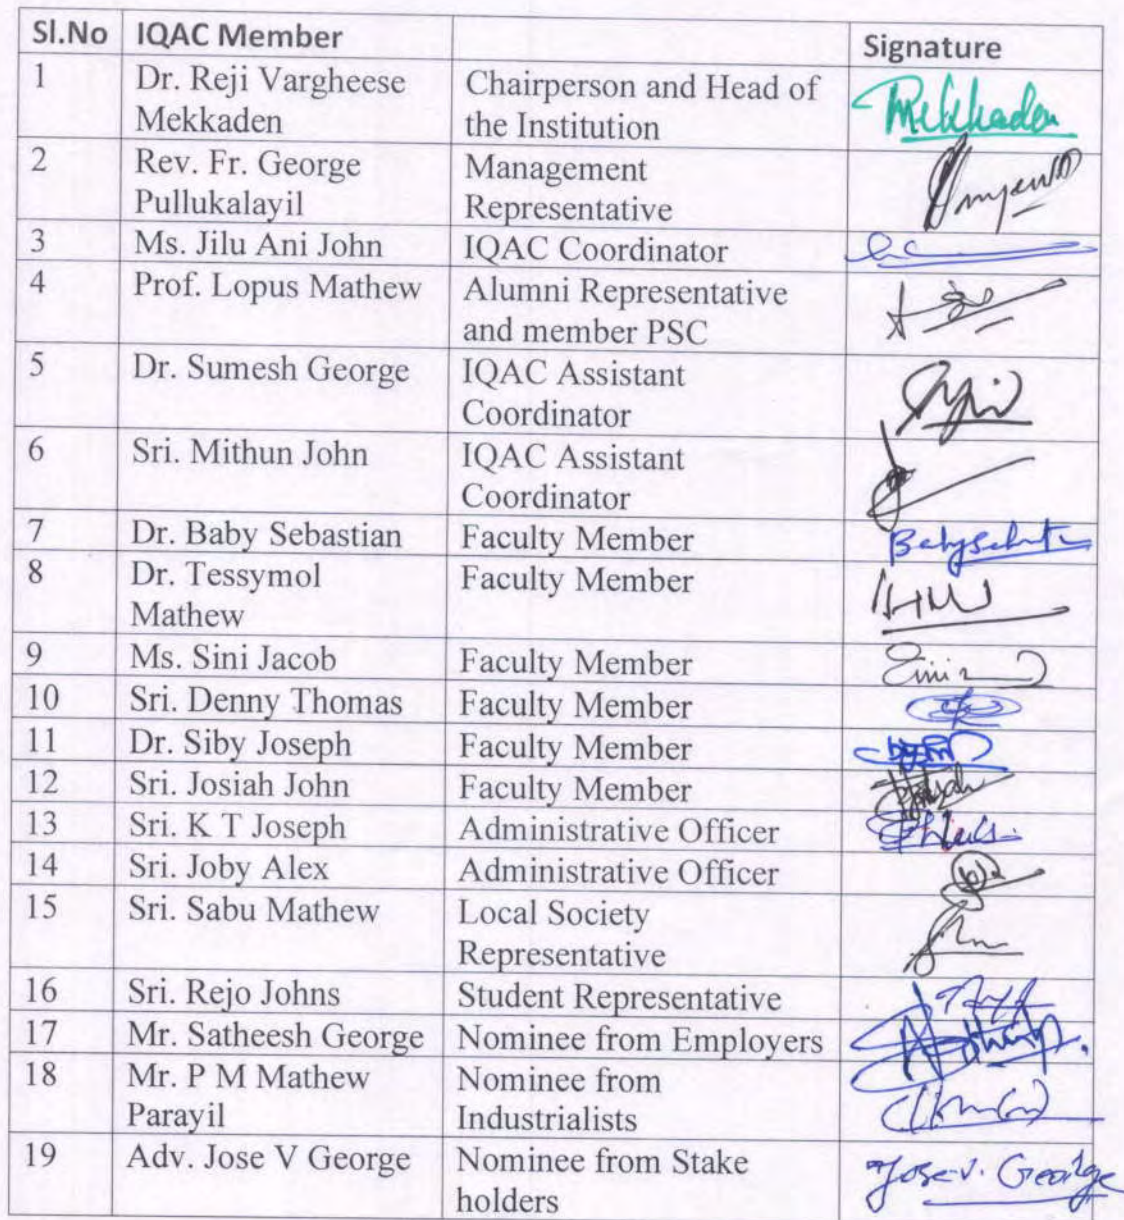 Sl.No IQAC Member Signature
1 Dr. Reji Vargheese Chairperson and Head of Mekkaden
Mekkaden the Institution
2 Rev. Fr. George Management
Pullukalayil Representative
3 Ms. Jilu Ani John IQAC Coordinator
4 Prof. Lopus Mathew Alumni Representative
and member PSC
5 Dr. Sumesh George IQAC Assistant
Coordinator
6 Sri. Mithun John IQAC Assistant
Coordinator
7 Dr. Baby Sebastian Faculty Member
8 Dr. Tessymol Faculty Member
Mathew
9 Ms. Sini Jacob Faculty Member
10 Sri. Denny Thomas Faculty Member
11 Dr. Siby Joseph Faculty Member
12 Sri. Josiah John Faculty Member
13 Sri. K T Joseph Administrative Officer
14 Sri. Joby Alex Administrative Officer
15 Sri. Sabu Mathew Local Society
Representative
16 Sri. Rejo Johns Student Representative
17 Mr. Satheesh George Nominee from Employers
18 Mr. P M Mathew Nominee from
Parayil Industrialists
19 Adv. Jose V George Nominee from Stake Jose V. George
holders